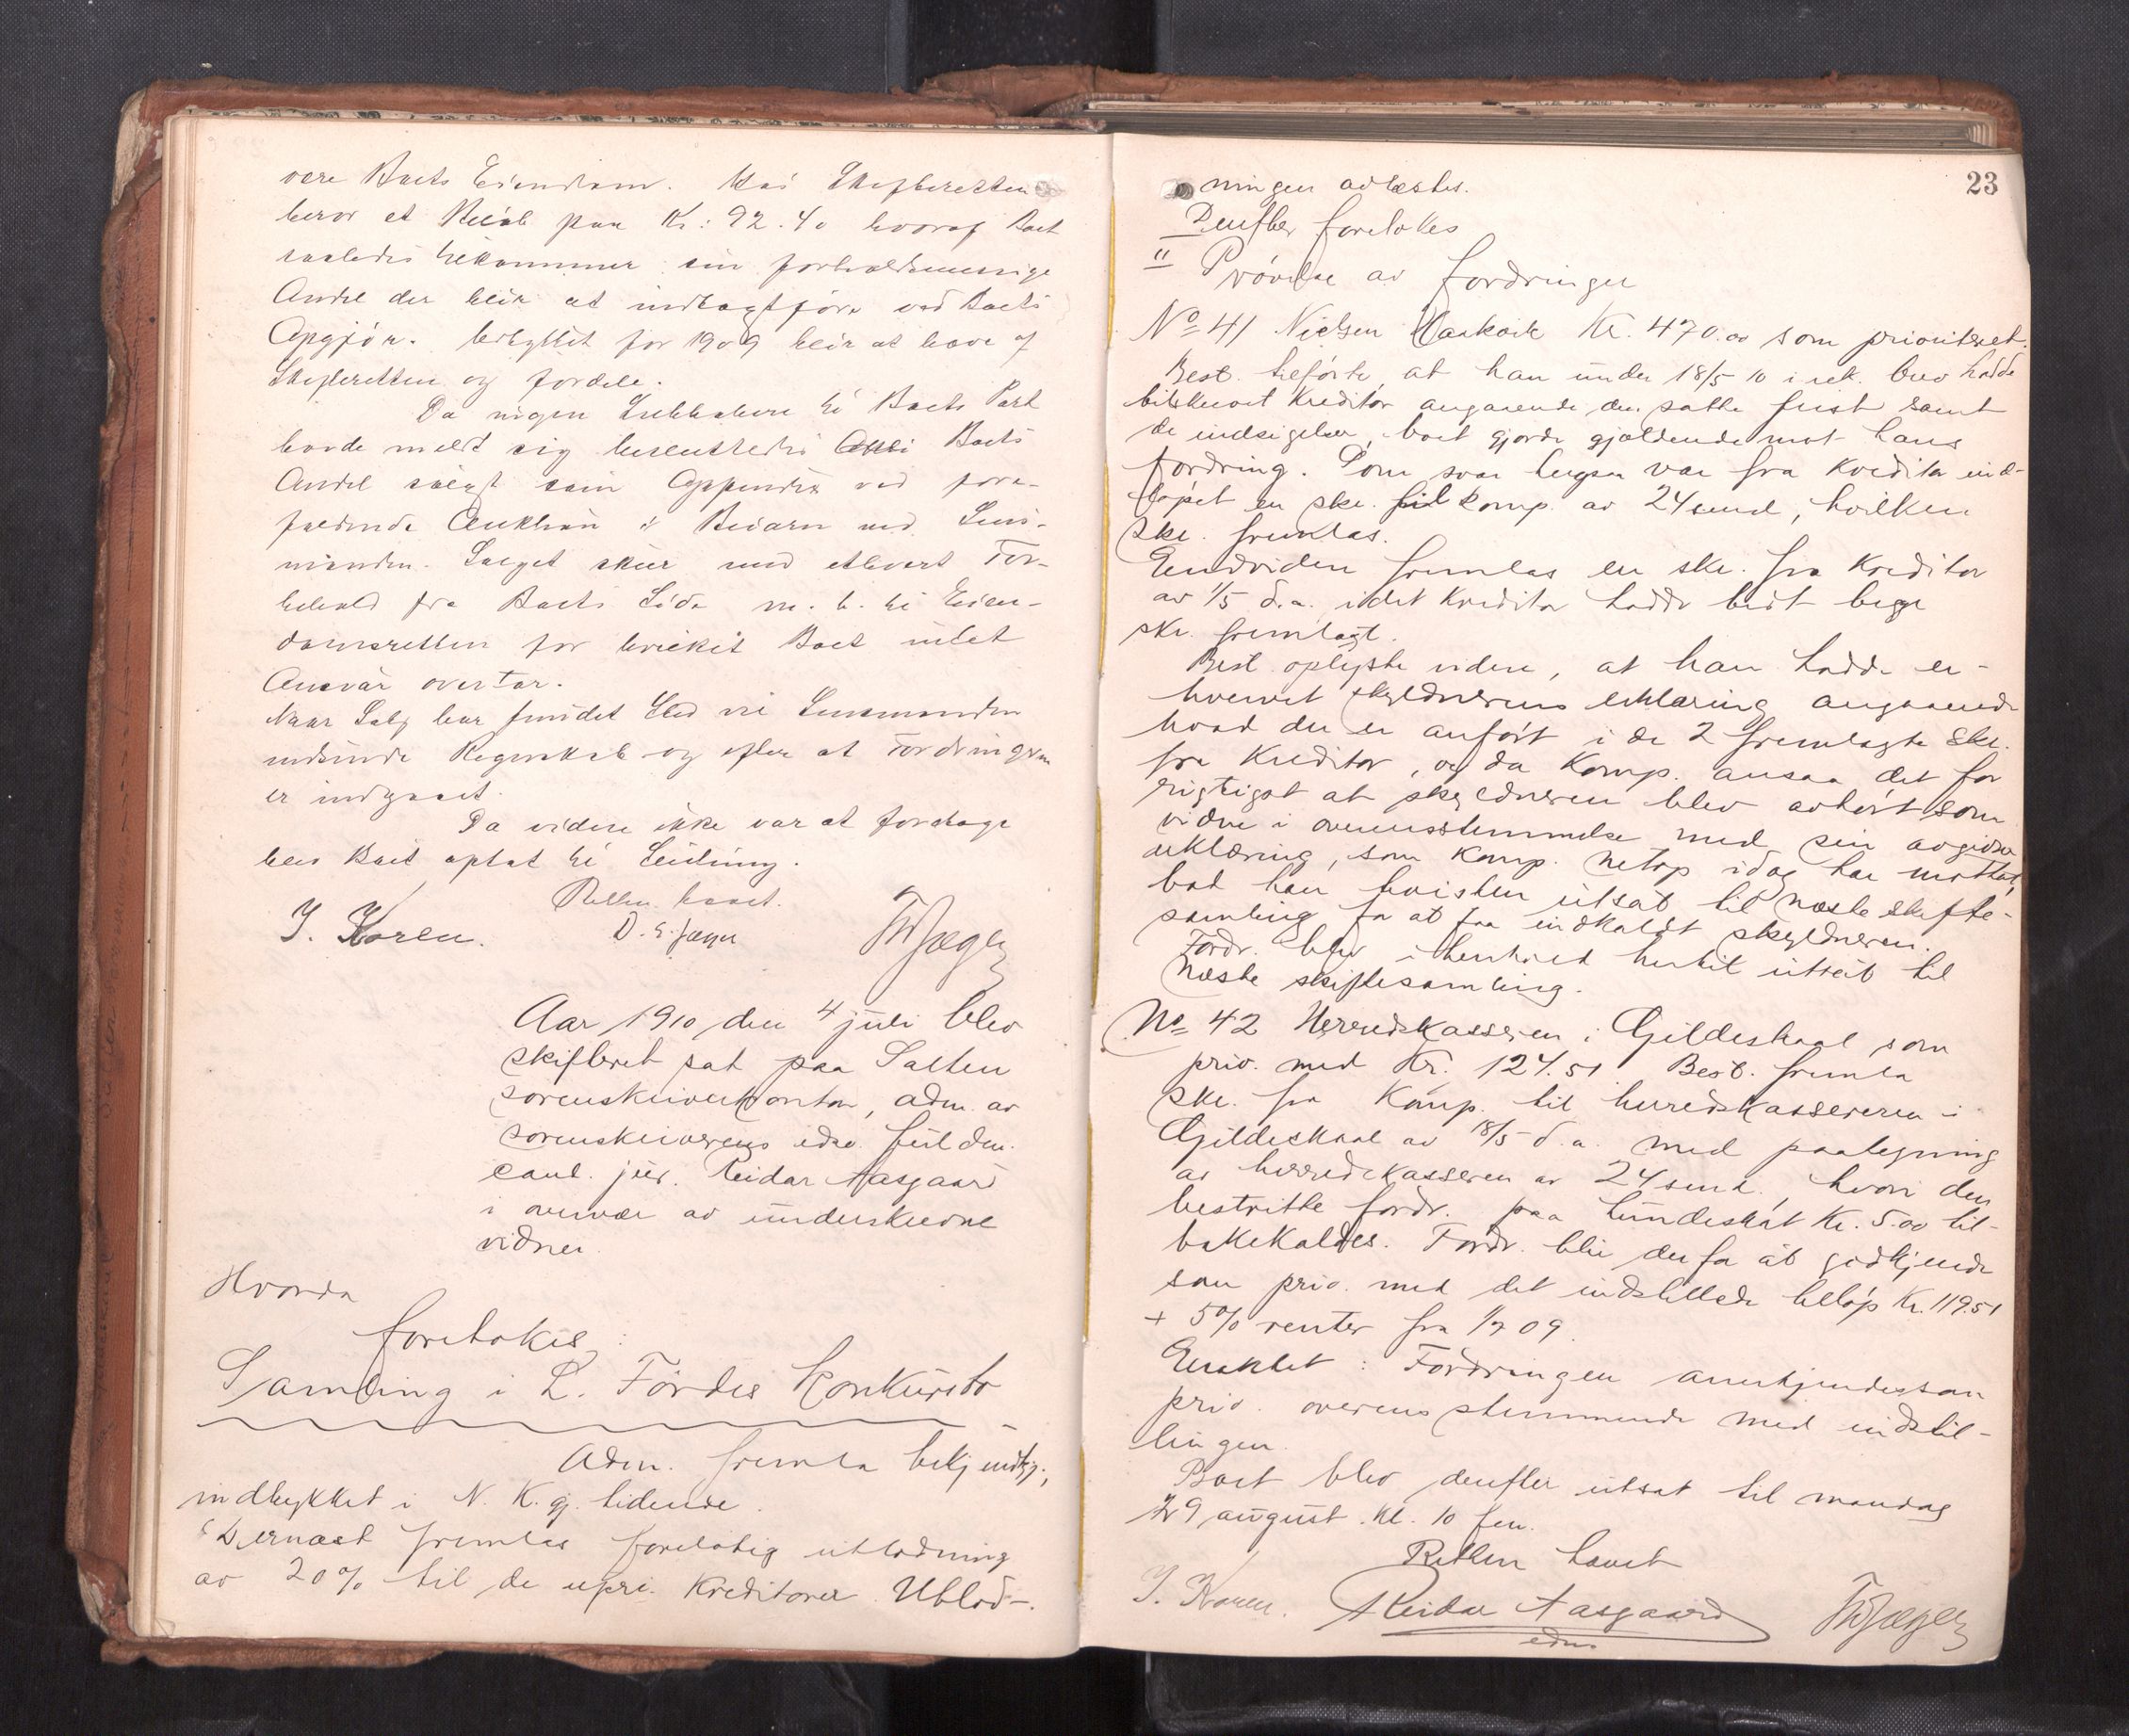 være Boets Eiendom. Hos Skifteretten
beror et Beløb paa Kr: 92.40 hvoraf Boet
saaledes tilkommer sin forholdsmessige
Andel der blir at indtagtføre ved Boets
Opgjør. Udbyttet for 1909 blir at hæve af
Skifteretten og fordele.
Da ingen Liebhabere til Boets Part
havde meldt sig besluttedes Boets
Andel solgt som Appendix ved
Auktion i Beiarn ved Lens-
manden. Salget skeer med ethvert For-
behold fra Boets Side m. h. til Eien-
domsretten for hvilket Boet intet
Ansvar overtar.
Naar Salg har fundet Sted vil Lensmanden
indsende Regnskab og efter at Fordringen
er indgaaet.
Da videre ikke var at foretage
blev Boet optat til Slutning.
Retten hævet.
J. Koren. D. E. Jæger ThJæger
Aar 1910 den 4 juli blev
skifteret sat paa Salten
sorenskriverkontor, adm. av
sorenskriverens edsv. fuldm.
cand. jur. Reidar Aasgaard
i overvær av underskrevne
vidner.
Hvorda
foretokes:
Samling i L. Førdes Konkursbo
Adm. fremla bekjendtgj.,
indrykket i N. K. gj. tidende.
Dernæst fremlas foreløbig utlodning
av 20% til de upri. kreditorer. Utlod-
23
ningen avlæstes.
Derefter foretokes
" Prøvelse av fordringer
No 41 Nielsen Kr. 470.00 som prioritert.
Best. tilførte, at han under 18/5 10 i rek. brev hadde
tilskrevet kreditor angaaende den satte frist samt
de indsigelser, boet gjorde gjældende mot hans
fordring. Som svar herpaa var fra kreditor ind-
løpet en skr. til komp. av 24 smd, hvilken
skr. fremlas.
Endvidere fremlas en skr. fra kreditor
av 1/5 d.a. idet kreditor hadde bedt begge
skr. fremlagt.
Best. oplyste videre, at han hadde er-
hvervet skyldnerens erklæring angaaende
hvad der er anført i de 2 fremlagte skr.
fra kreditor, og da komp. ansaa det for
rigtigst at skyldneren blev avhørt som
vidne i overensstemmelse med sin avgivne
erklæring, som komp. netop idag har mottat,
bad han tvisten utsat til næste skifte-
samling for at faa indkaldt skyldneren.
Fordr. blev i henhold hertil utsat til
næste skiftesamling.
No 42 Herredskassereren i Gildeskaal som
prio. med Kr. 124.51. Best. fremla
skr. fra komp. til herredskassereren i
Gildeskaal av 18/5 d.a. med paategning
av herredskassereren av 24 smd., hvori den
bestridte fordr. paa hundeskat Kr. 5.00 til-
bakekaldes. Fordr. blir derfor at godkjende
som prio. med det indstillede beløp Kr. 119.51
+ 5% renter fra 1/7 09.
Eragtet: Fordringen anerkjendes som
prio. overensstemmende med indstil-
lingen.
Boet blev derefter utsat til mandag
29 august kl. 10 fm.
Retten hævet
J. Koren. Reidar Aasgaard ThJæger
edsv.